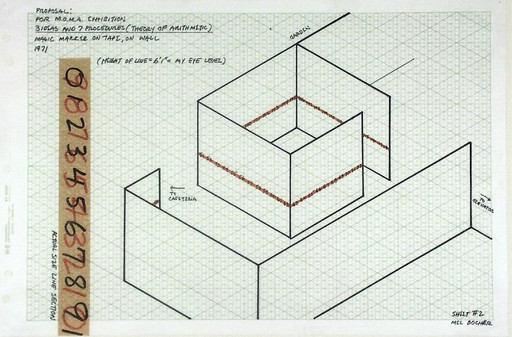 PROPOSAL:
FOR M.O.M.A. EXHIBITION
3 IDEAS AND 7 PROCEDURES (THEORY OF ARITHMETIC)
MAGIC MARKER ON TAPE, ON WALL
1971
(HEIGHT OF LINE = 6'1" = MY EYE LEVEL)
GARDEN
TO
CAFETERIA
TO
ELEVATOR
0 1 2 3 4 5 6 7 8 9
ACTUAL SIZE LINE SECTION
SHEET #2
MEL BOCHNER